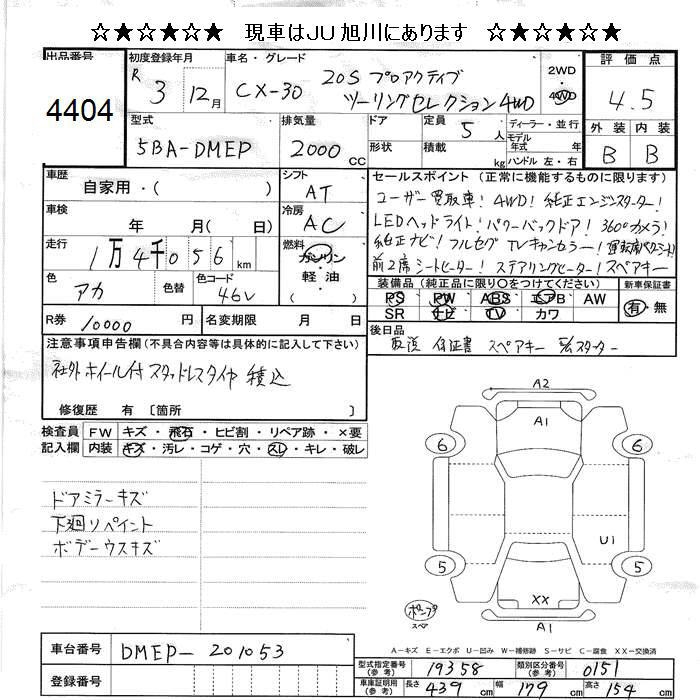 ☆★☆★☆★ 現車はJU旭川にあります ☆★☆★☆★
出品番号
4404
初度登録年月
R 3 12月
車名・グレード
CX-30 20S プロアクティブ
ツーリングセレクション 4WD
2WD
・
4WD
評価点
4.5
外装 内装
B B
型式
5BA-DMEP
排気量
2000 cc
ドア
形状
定員 5 人
積載 kg
ディーラー・並行
モデル
年式 年
ハンドル 左・右
車歴
自家用・( )
シフト
AT
車検
年 月( 日)
冷房
AC
走行
1万4千056 km
燃料
ガソリン
・
軽油
( )
色
アカ
色替
色コード
46V
R券 10000 円
名変期限 月 日
セールスポイント (正常に機能するものに限ります)
ユーザー買取車! 4WD! 純正エンジンスターター!
LEDヘッドライト! パワーバックドア! 360°カメラ!
純正ナビ! フルセグTVキャンセラー!
前2席シートヒーター! ステアリングヒーター! スペアキー
装備品 (純正品に限り○をつけてください)
PS PW ABS エアB AW
SR ナビ TV カワ
新車保証書
有・無
後日品
取説 保証書 スペアキー E/gスターター
注意事項申告欄(不具合内容等は具体的に記入して下さい)
社外ホイール付スタッドレスタイヤ積込
修復歴 有 〔箇所 〕
検査員
記入欄
FW キズ・飛石・ヒビ割・リペア跡・×要
内装 キズ・汚レ・コゲ・穴・スレ・キレ・破レ
ドアミラーキズ
下廻リペイント
ボデーウスキズ
A2
A1
6 6
U1
5 5
XX
ポンプ
スペア
A1
A-キズ E-エクボ U-凹み W-補修跡 S-サビ C-腐食 XX-交換済
車台番号
DMEP-201053
登録番号
型式指定番号
(参考)
19358
類別区分番号
(参考)
0151
車庫証明用
(参考)
長さ 439 cm 幅 179 cm 高さ 154 cm